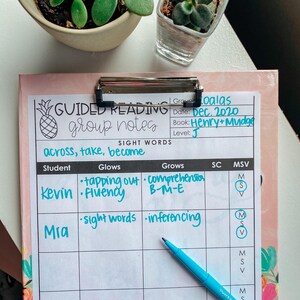 GUIDED READING
group notes
Date: Dec. 2020
Book: Henry + Mudge
Level: J
SIGHT WORDS
across, take, become
Student Glows Grows SC MSV
Kevin • tapping out • comprehension M
• fluency B-M-E S
V
Mia • sight words • inferencing M
S
V
M
S
V
M
S